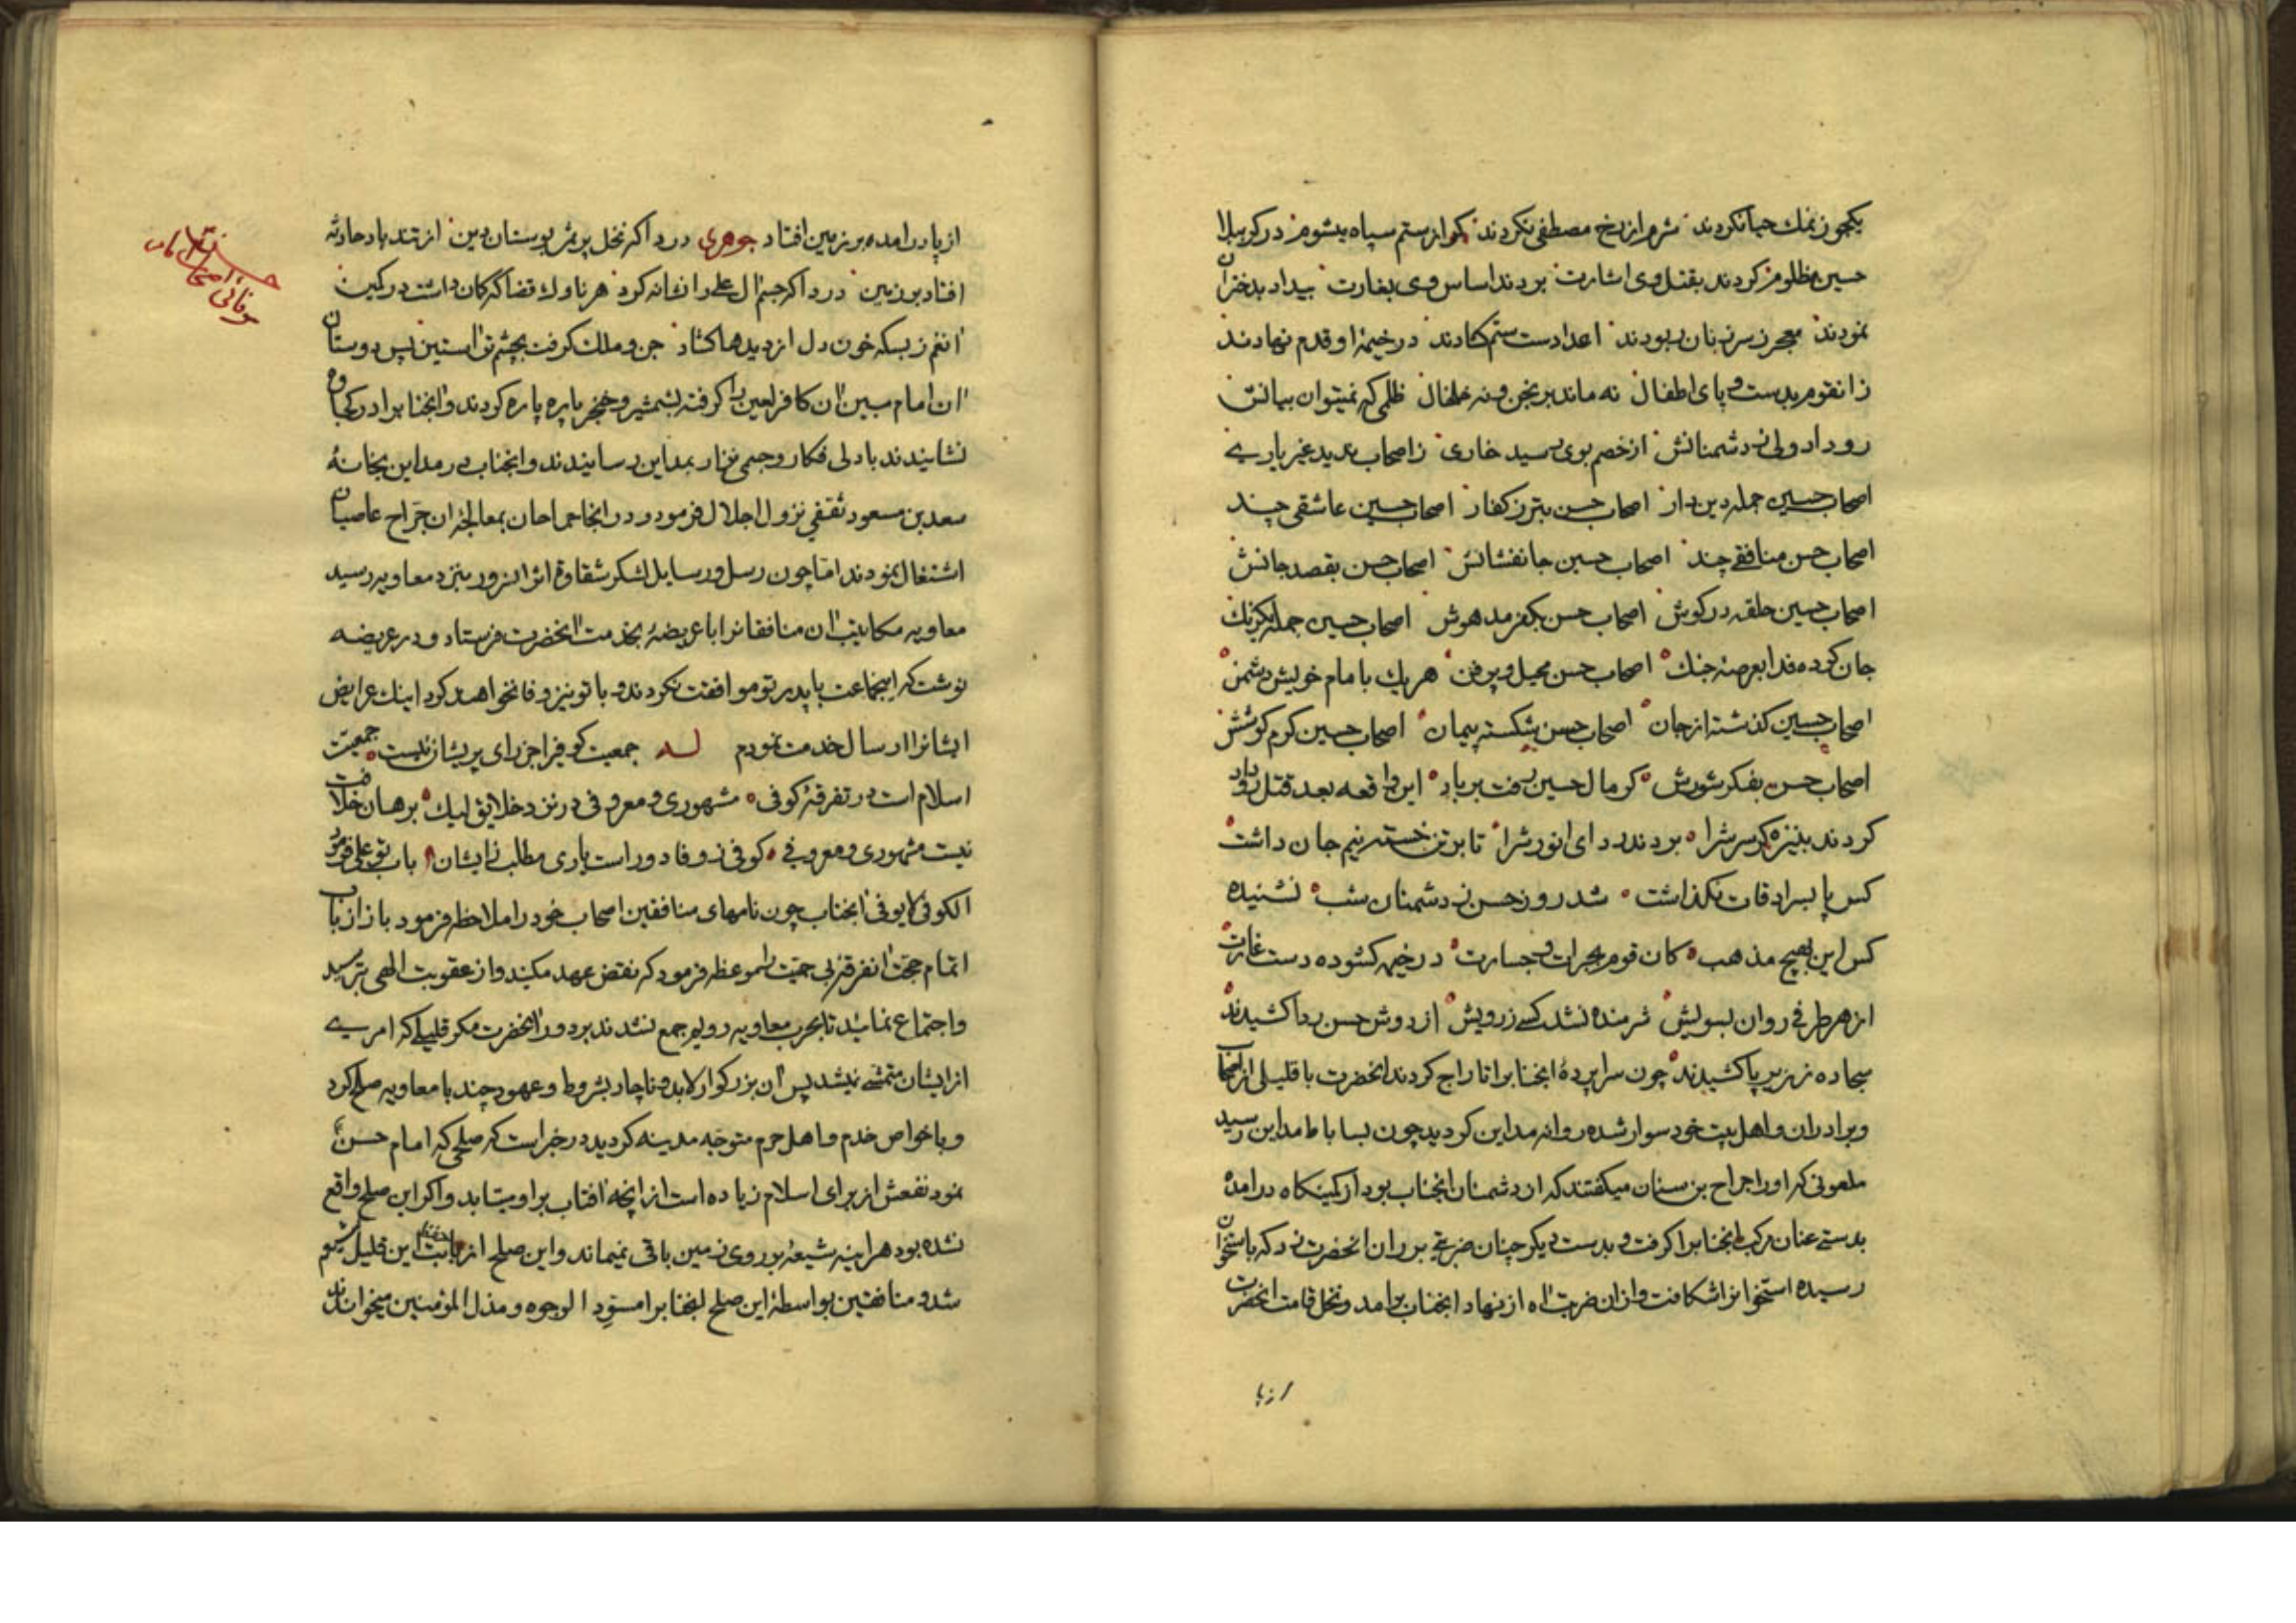 یکجو ز نمك حیا نکردند شرم از رخ مصطفی نکردند کر از ستم سپاه میشوم در کربلا
حسین مظلوم کردند بقتل وی اشارت بردند اساس وی بغارت بیداد بدختران
نمودند معجر ز سر زنان ربودند اعدا دست ستم کشادند در خیمهٔ او قدم نهادند
زانقوم بدست و پای اطفال نه ماند برنجن و نه خلخال ظلمی که نمیتوان بیانش
رو داد ولی ز دشمنانش از خصم بوی رسید خاری ز اصحاب ندید غیر یاری
اصحاب حسین جمله دین دار اصحاب حسن بتر ز کفار اصحاب حسین عاشقی چند
اصحاب حسن منافقی چند اصحاب حسین جانفشانش اصحاب حسن بقصد جانش
اصحاب حسین حلقه در کوش اصحاب حسن بکفر مدهوش اصحاب حسین جمله یکرنك
جان کرده فدا بعرصهٔ جنك اصحاب حسن محیل و پر فن هریك با مام خویش دشمن
اصحاب حسین کذشته از جان اصحاب حسن شکسته پیمان اصحاب حسین کرم کوشش
اصحاب حسن بفکر شورش کر مال حسین رفت بر باد این واقعه بعد قتل رو داد
کردند بنیزه کر سرش را بردند ردای انورش را تا بر تن خسته نیم جان داشت
کس پا بسرادقات نکذاشت شد روز حسن ز دشمنان شب نشنیده
کس این بهیچ مذهب کان قوم بجرات و جسارت در خیمه کشوده دست غارت
از هر طرفی روان بسویش شرمنده نشد کسی ز رویش از دوش حسن ردا کشیدند
سجاده ز زیر پا کشیدند چون سراپردهٔ انجنابرا تاراج کردند انحضرت با قلیلی از اصحاب
و برادران و اهل بیت خود سوار شده روانه مداین کردید چون بساباط مداین رسید
ملعونی که او را جراح بن سنان میکفتند که از دشمنان انجناب بود از کمینکاه درامده
بدستی عنان مرکب انجنابرا کرفت و بدست دیکر چنان ضربتی بر ران انحضرت زد که باستخوان
رسیده استخوانرا شکافت و ازان ضربت اه از نهاد انجناب برامد و نخل قامت انحضرت
از پا
از پا درامده بر زمین افتاد جوهری دردا که نخل پر ثمر بوستان دین از تند باد حادثه
افتاد بر زمین دردا که جسم ال علی را نشانه کرد هر ناوك قضا که کمان داشت در کمین
انغم ز بسکه خون دل از دیدها کشاد جن و ملك کرفت بچشم تر استین پس دوستان
ان امام مبین ان کافر لعین را کرفته بشمشیر و خنجر پاره پاره کردند و انجنابرا در کجاوه
نشانیدند با دلی فکار و جسمی نزار بمداین رسانیدند و انجناب در مداین بخانهٔ
سعد بن مسعود ثقفی نزول اجلال فرمود و در انجا جراحان بمعالجهٔ ان جراح عاصیان
اشتغال نمودند اما چون رسل و رسایل لشکر شقاوة اثر الزور بنزد معاویه رسید
معاویه مکاتیب ان منافقانرا با عریضهٔ بخدمت انحضرت فرستاد و در عریضه
نوشت که اینجماعت با پدر تو موافقت نکردند و با تو نیز وفا نخواهند کرد اینك عرایض
ایشانرا ارسال خدمت نمودم لـه جمعیت کوفیرا جز رای پریشان نیست جمعیت
اسلام است در تفرقهٔ کوفی مشهوری و معروفی در نزد خلایق لیك برهان خلافت
نیست مشهوری و معروفی کوفی ز وفا دور است یاری مطلب زایشان باب تو علی فرمود
الکوفی لا یوفی انجناب چون نامهای منافقین اصحاب خود را ملاحظه فرمود باز از باب
اتمام حجت انفرقه بی حمیت را موعظه فرمود که نقض عهد مکنید و از عقوبت الهی بترسید
و اجتماع نمائید تا بحرب معاویه رویم جمع نشدند بر دور انحضرت مکر قلیلی که امری
از ایشان متمشی نمیشد پس ان بزرکوار لابد و ناچار بشروط و عهود چند با معاویه صلح کرد
و با خواص خدم و اهل حرم متوجه مدینه کردید در خبر است که صلحی که امام حسن ع
نمود نفعش از برای اسلام زیاده است از انچه افتاب بر او میتابد و اکر این صلح واقع
نشده بود هراینه شیعهٔ بر روی زمین باقی نمیماند و این صلح از بابت این قلیل
شد و منافقین بواسطهٔ این صلح انجنابرا مسود الوجوه و مذل المؤمنین میخواندند